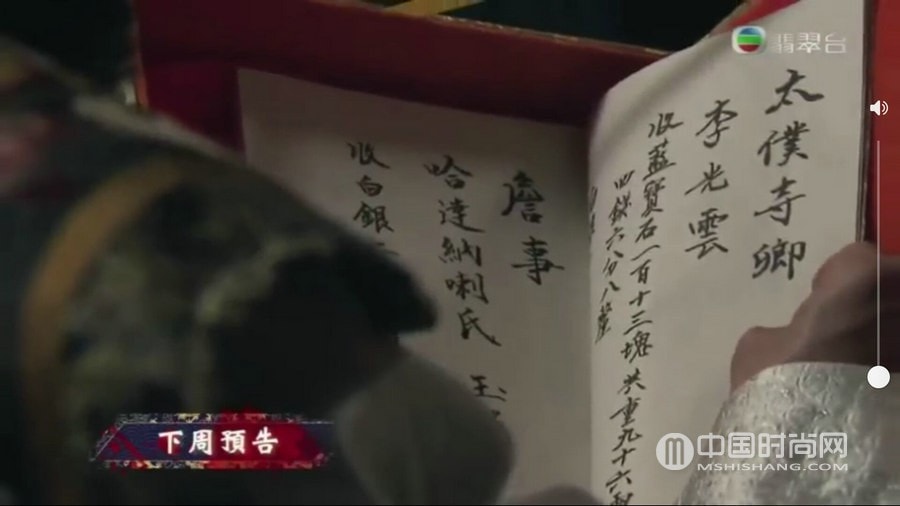 翡翠台
太僕寺卿
李光雲
收藍寶石一百十三塊共重九十六
四錢六分八釐
詹事
哈達納喇氏
玉
收白銀
下周預告
中国时尚网
MSHISHANG.COM